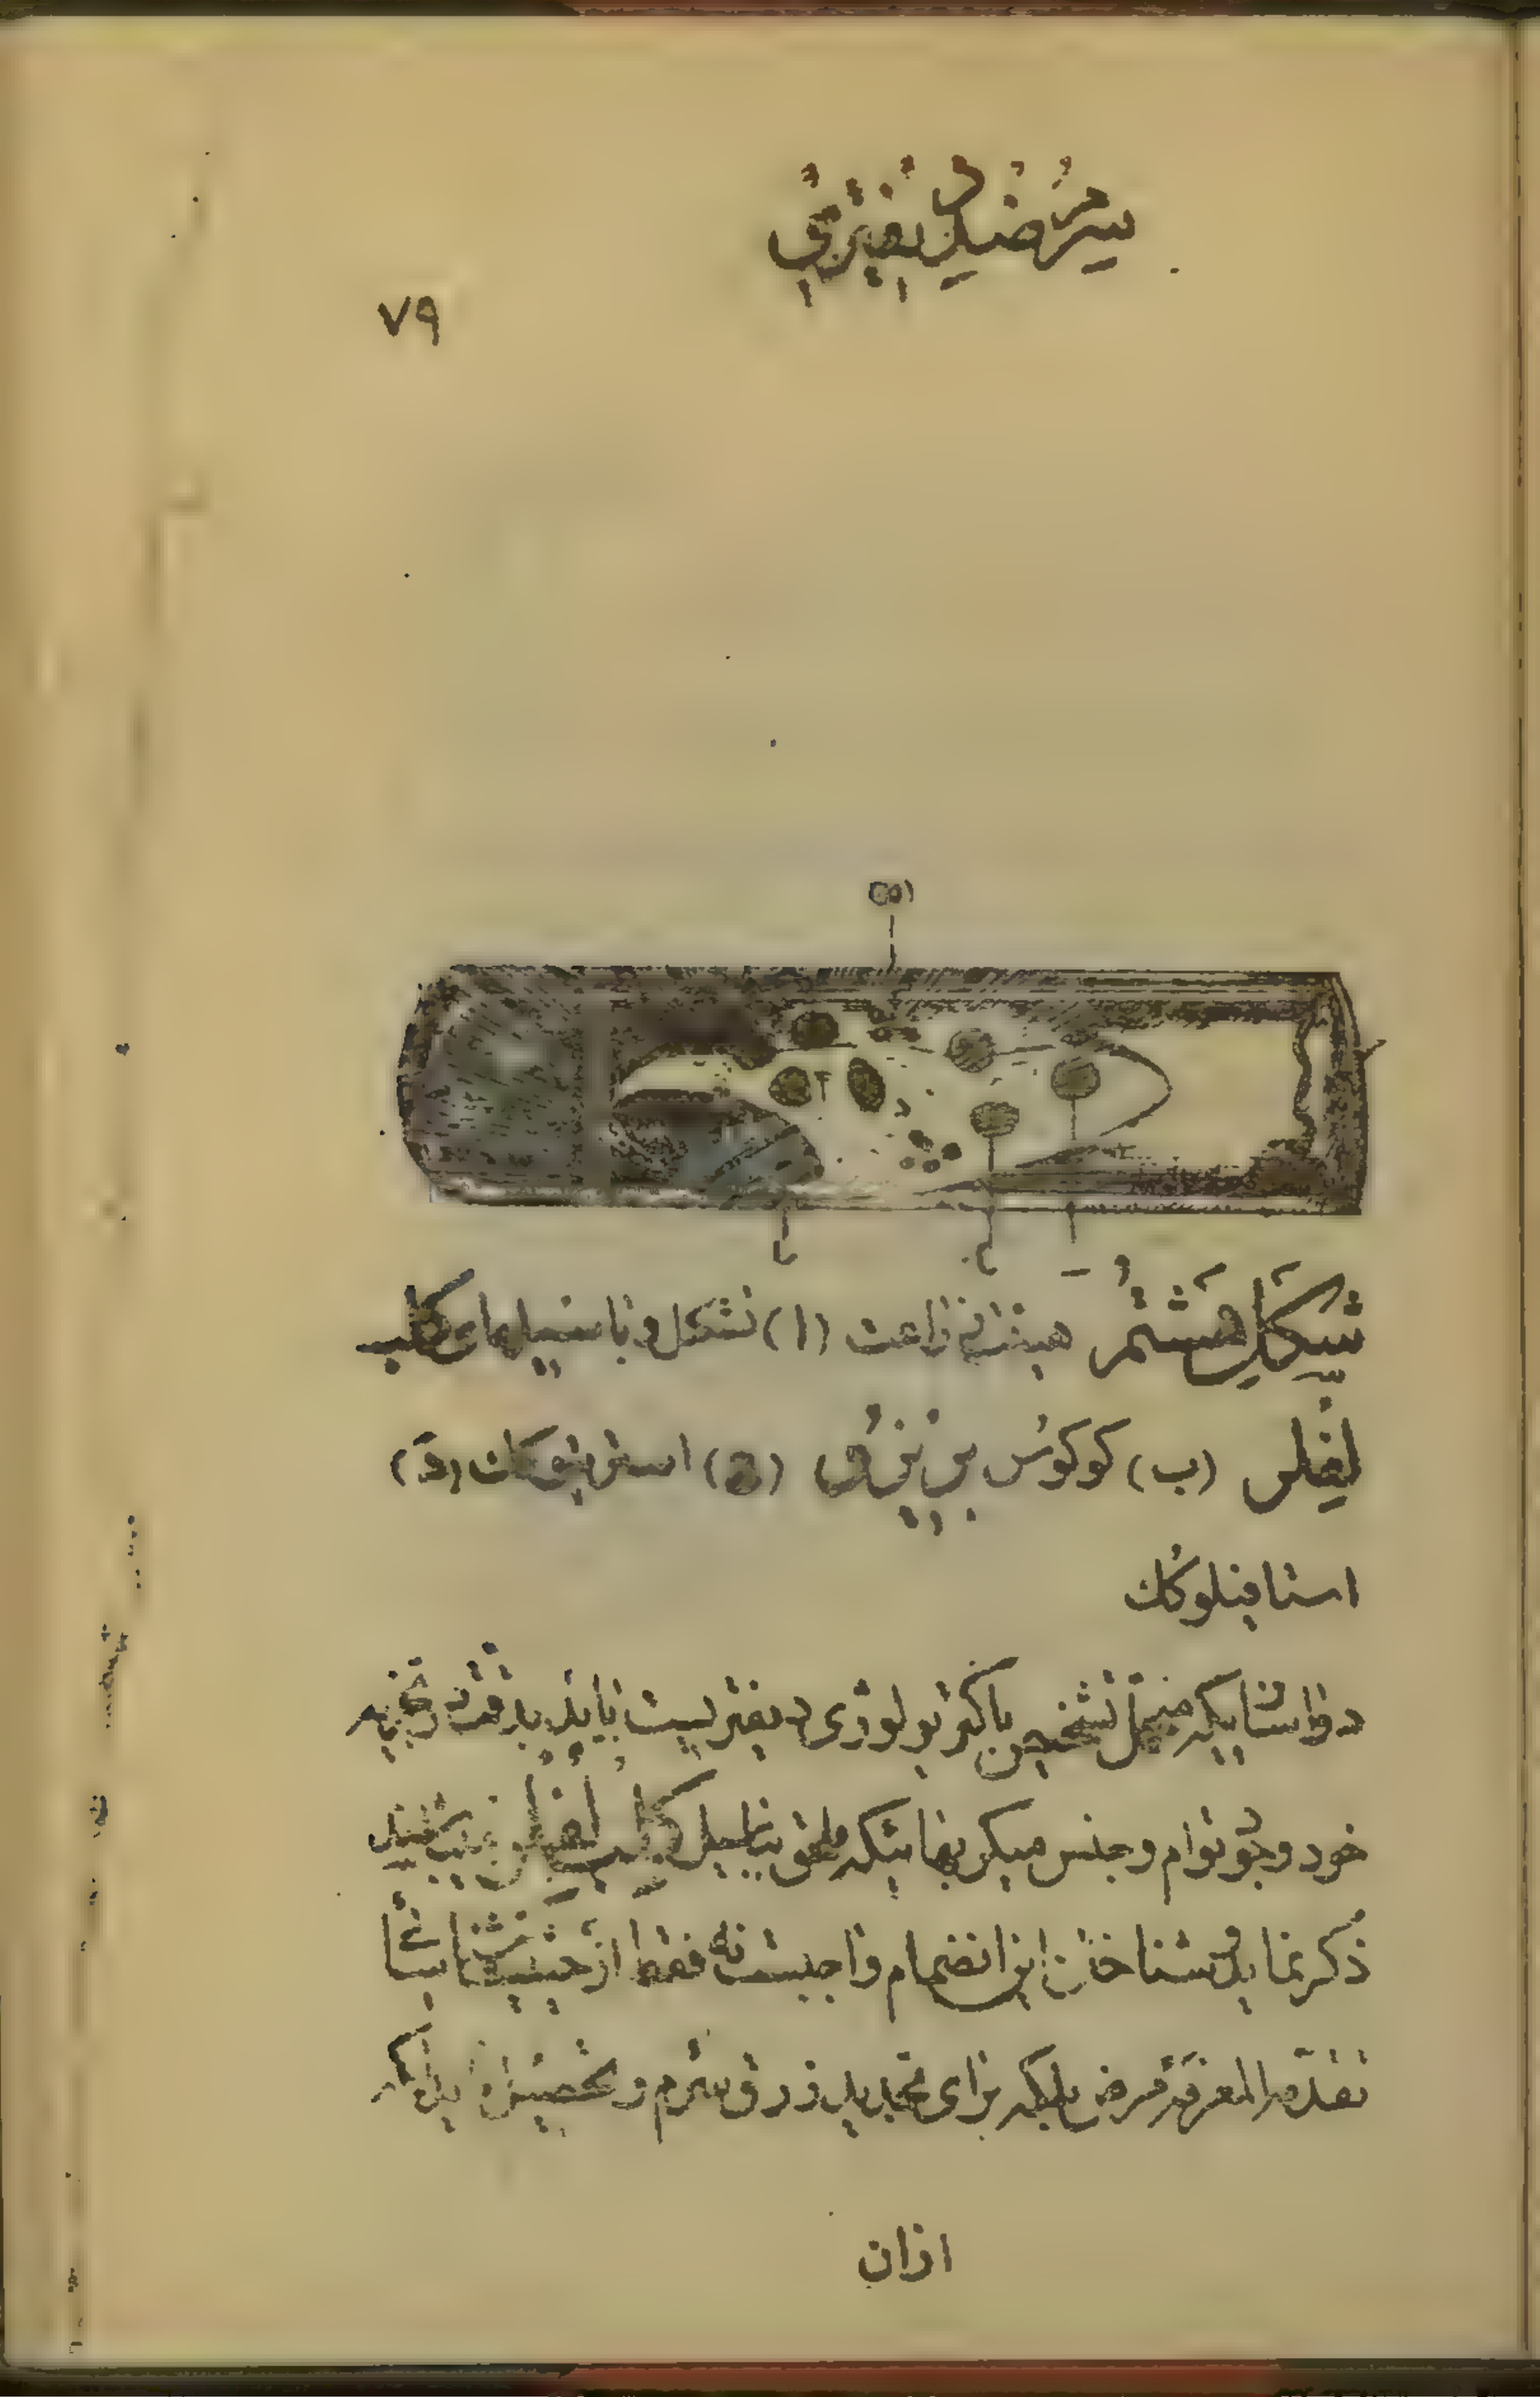 سرم ضد دیفتری
۷۹
شکل هشتم هیئت زراعت (ا) تشکل و باسیلهای کلب
لفلر (ب) کوکوس بریزو (ج) استرپتوکک (د)
استافیلوکک
در اثنائیکه عمل تشخیص باکتریولوژی دیفتریست باید بدقت تجزیه
خود وجود توام وجنس میکربهائیکه ملحق بباسیل کلب لفلر
ذکر نماید شناختن این انضمام واجبست نه فقط از حیثیت شناسائی
تقدمة المعرفه مرض بلکه برای تجدید زرق سرم و
ازان